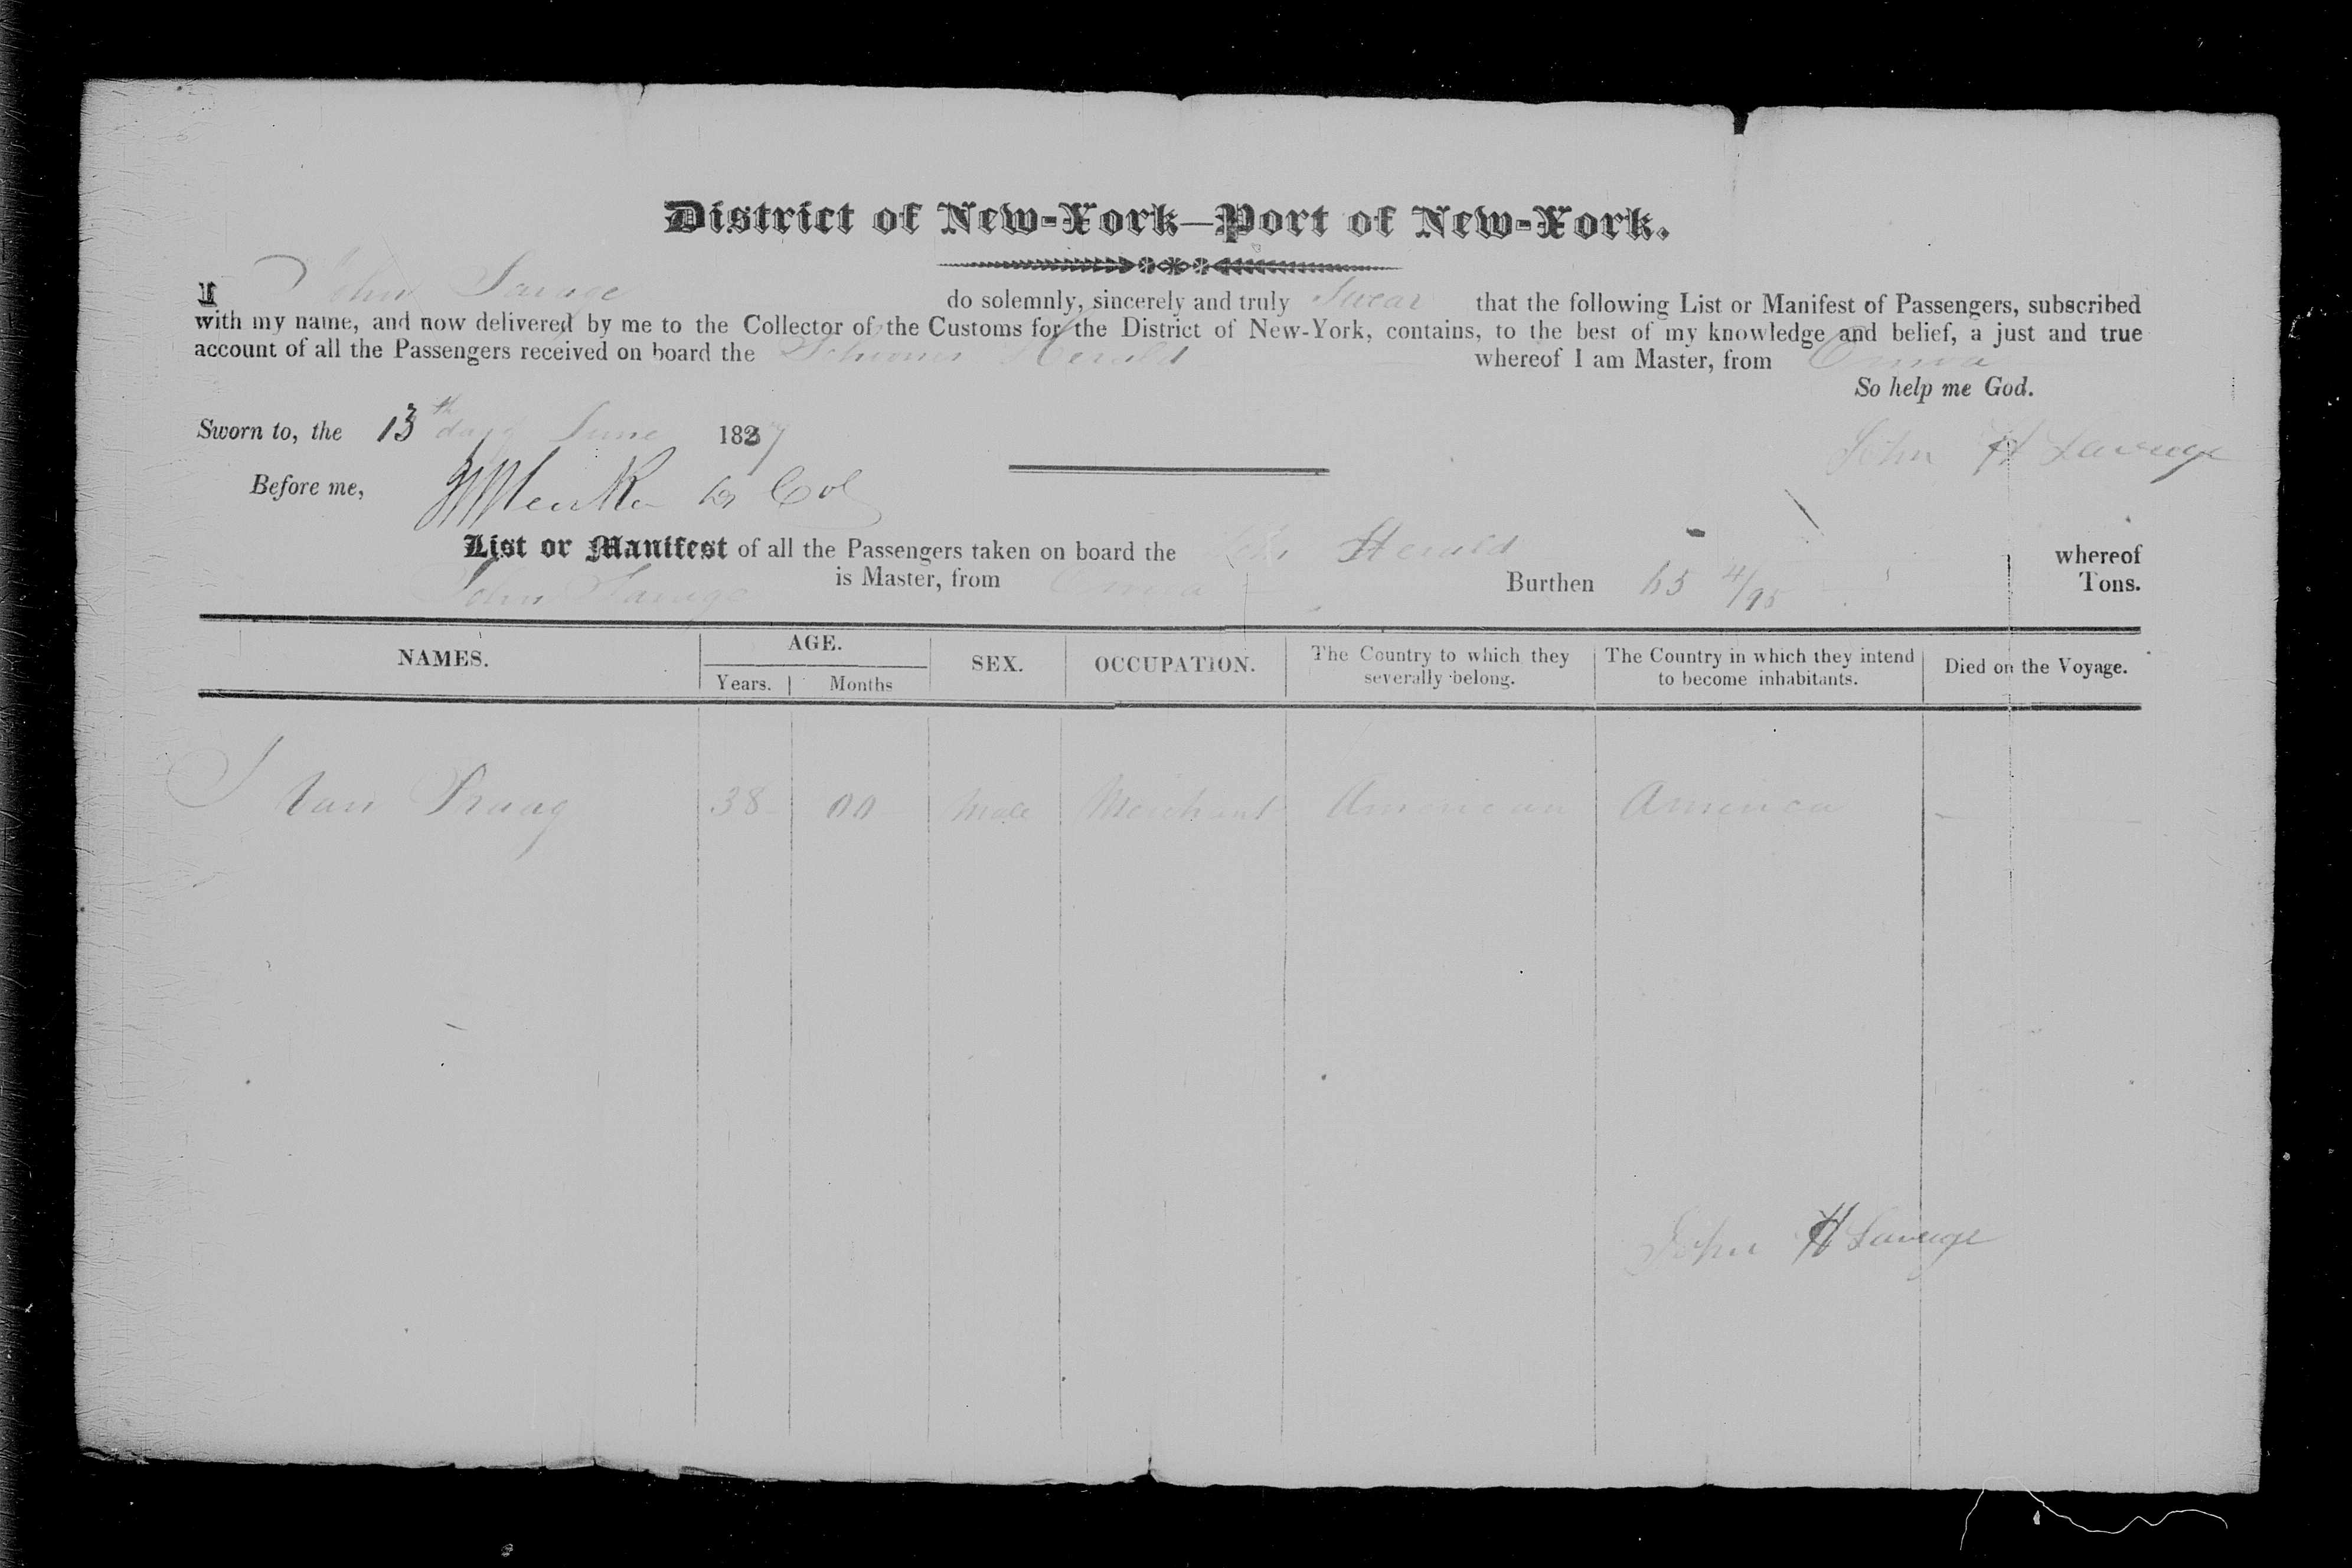 District of New-York—Port of New-York.
I John Savage do solemnly, sincerely and truly Swear that the following List or Manifest of Passengers, subscribed
with my name, and now delivered by me to the Collector of the Customs for the District of New-York, contains, to the best of my knowledge and belief, a just and true
account of all the Passengers received on board the Schooner Herald whereof I am Master, from Omoa
So help me God.
Sworn to, the 13th day of June 1837
John H Savage
Before me,
List or Manifest of all the Passengers taken on board the Schr Herald whereof
John Savage is Master, from Omoa Burthen 65 4/95 Tons.
NAMES. AGE. SEX. OCCUPATION. The Country to which they severally belong. The Country in which they intend to become inhabitants. Died on the Voyage.
Years. Months
J Van Praag 38 00 Male Merchant American America —
John H Savage